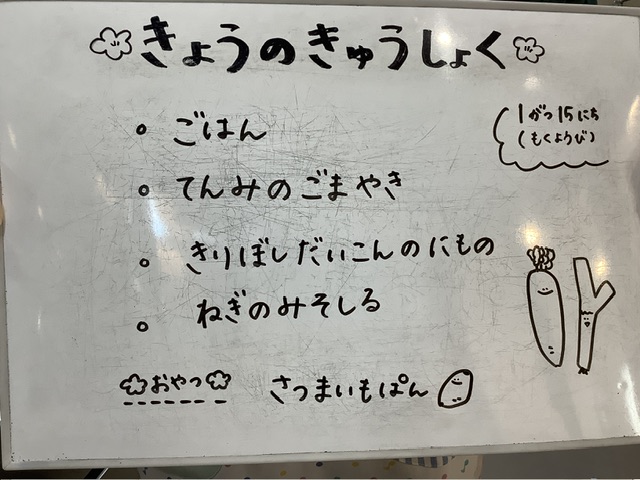 きょうのきゅうしょく
1がつ15にち
(もくようび)
ごはん
てんみのごまやき
きりぼしだいこんのにもの
ねぎのみそしる
おやつ
さつまいもぱん